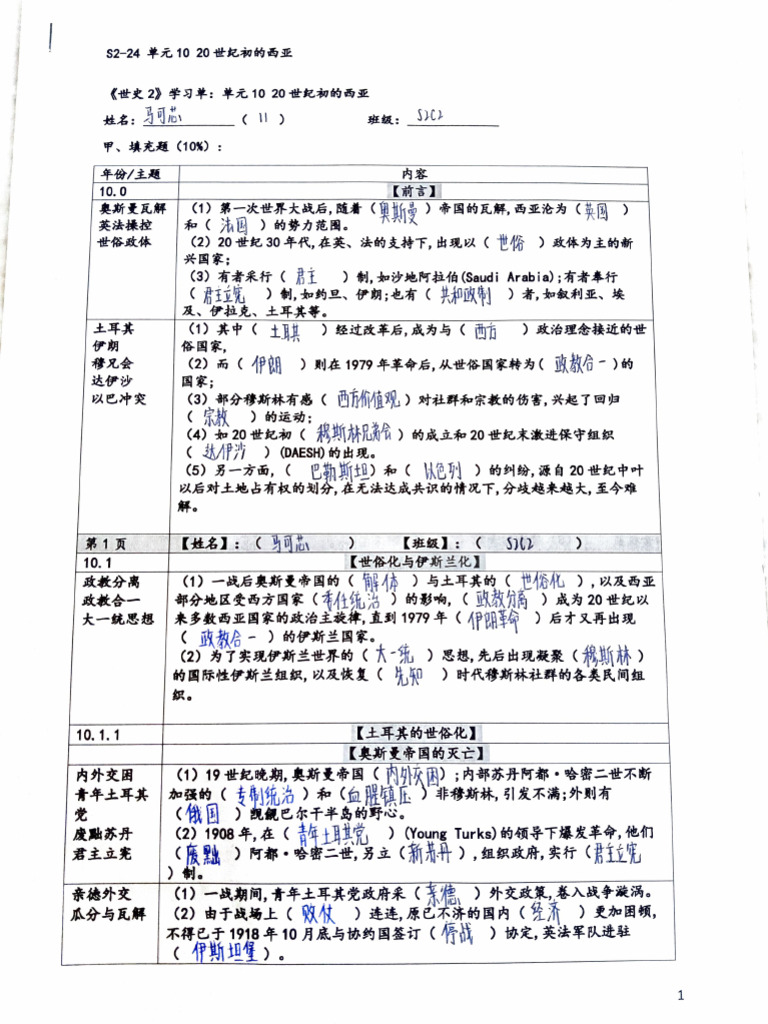 S2-24 单元10 20世纪初的西亚
《世史2》学习单：单元10 20世纪初的西亚
姓名：马可芯 （ 11 ） 班级：S2C2
甲、填充题（10%）：
年份/主题 内容
10.0 【前言】
奥斯曼瓦解
英法操控
世俗政体
（1）第一次世界大战后,随着（奥斯曼 ）帝国的瓦解,西亚沦为（英国 ）
和（ 法国 ）的势力范围。
（2）20世纪30年代,在英、法的支持下,出现以（ 世俗 ）政体为主的新
兴国家；
（3）有者采行（ 君主 ）制,如沙地阿拉伯(Saudi Arabia);有者奉行
（ 君主立宪 ）制,如约旦、伊朗;也有（ 共和政制 ）者,如叙利亚、埃
及、伊拉克、土耳其等。
土耳其
伊朗
穆兄会
达伊沙
以巴冲突
（1）其中（ 土耳其 ）经过改革后,成为与（ 西方 ）政治理念接近的世
俗国家,
（2）而（ 伊朗 ）则在1979年革命后,从世俗国家转为（ 政教合一 )的
国家；
（3）部分穆斯林有感（ 西方价值观 ）对社群和宗教的伤害,兴起了回归
（ 宗教 ）的运动；
（4）如20世纪初（ 穆斯林兄弟会 ）的成立和20世纪末激进保守组织
（ 达伊沙 ）(DAESH)的出现。
（5）另一方面,（ 巴勒斯坦）和（ 以色列 ）的纠纷,源自20世纪中叶
以后对土地占有权的划分,在无法达成共识的情况下,分歧越来越大,至今难
解。
第1页 【姓名】：（ 马可芯 ） 【班级】：（ S2C2 ）
10.1 【世俗化与伊斯兰化】
政教分离
政教合一
大一统思想
（1）一战后奥斯曼帝国的（ 解体 ）与土耳其的（ 世俗化 ）,以及西亚
部分地区受西方国家（委任统治 ）的影响,（ 政教分离 ）成为20世纪以
来多数西亚国家的政治主旋律,直到1979年（伊朗革命 ）后才又再出现
（ 政教合一 ）的伊斯兰国家。
（2）为了实现伊斯兰世界的（ 大一统 ）思想,先后出现凝聚（穆斯林 ）
的国际性伊斯兰组织,以及恢复（ 先知 ）时代穆斯林社群的各类民间组
织。
10.1.1 【土耳其的世俗化】
【奥斯曼帝国的灭亡】
内外交困
青年土耳其
党
废黜苏丹
君主立宪
（1）19世纪晚期,奥斯曼帝国（ 内外交困）;内部苏丹阿都·哈密二世不断
加强的（ 专制统治 ）和（血腥镇压 ）非穆斯林,引发不满;外则有
（俄国 ）觊觎巴尔干半岛的野心。
（2）1908年,在（ 青年土耳其党 ）(Young Turks)的领导下爆发革命,他们
（废黜 ）阿都·哈密二世,另立（新苏丹 ）,组织政府,实行（君主立宪
）制。
亲德外交
瓜分与瓦解
（1）一战期间,青年土耳其党政府采（ 亲德 ）外交政策,卷入战争漩涡。
（2）由于战场上（ 败仗 ）连连,原已不济的国内（ 经济 ）更加困顿,
不得已于1918年10月底与协约国签订（ 停战 ）协定,英法军队进驻
（ 伊斯坦堡 ）。
1